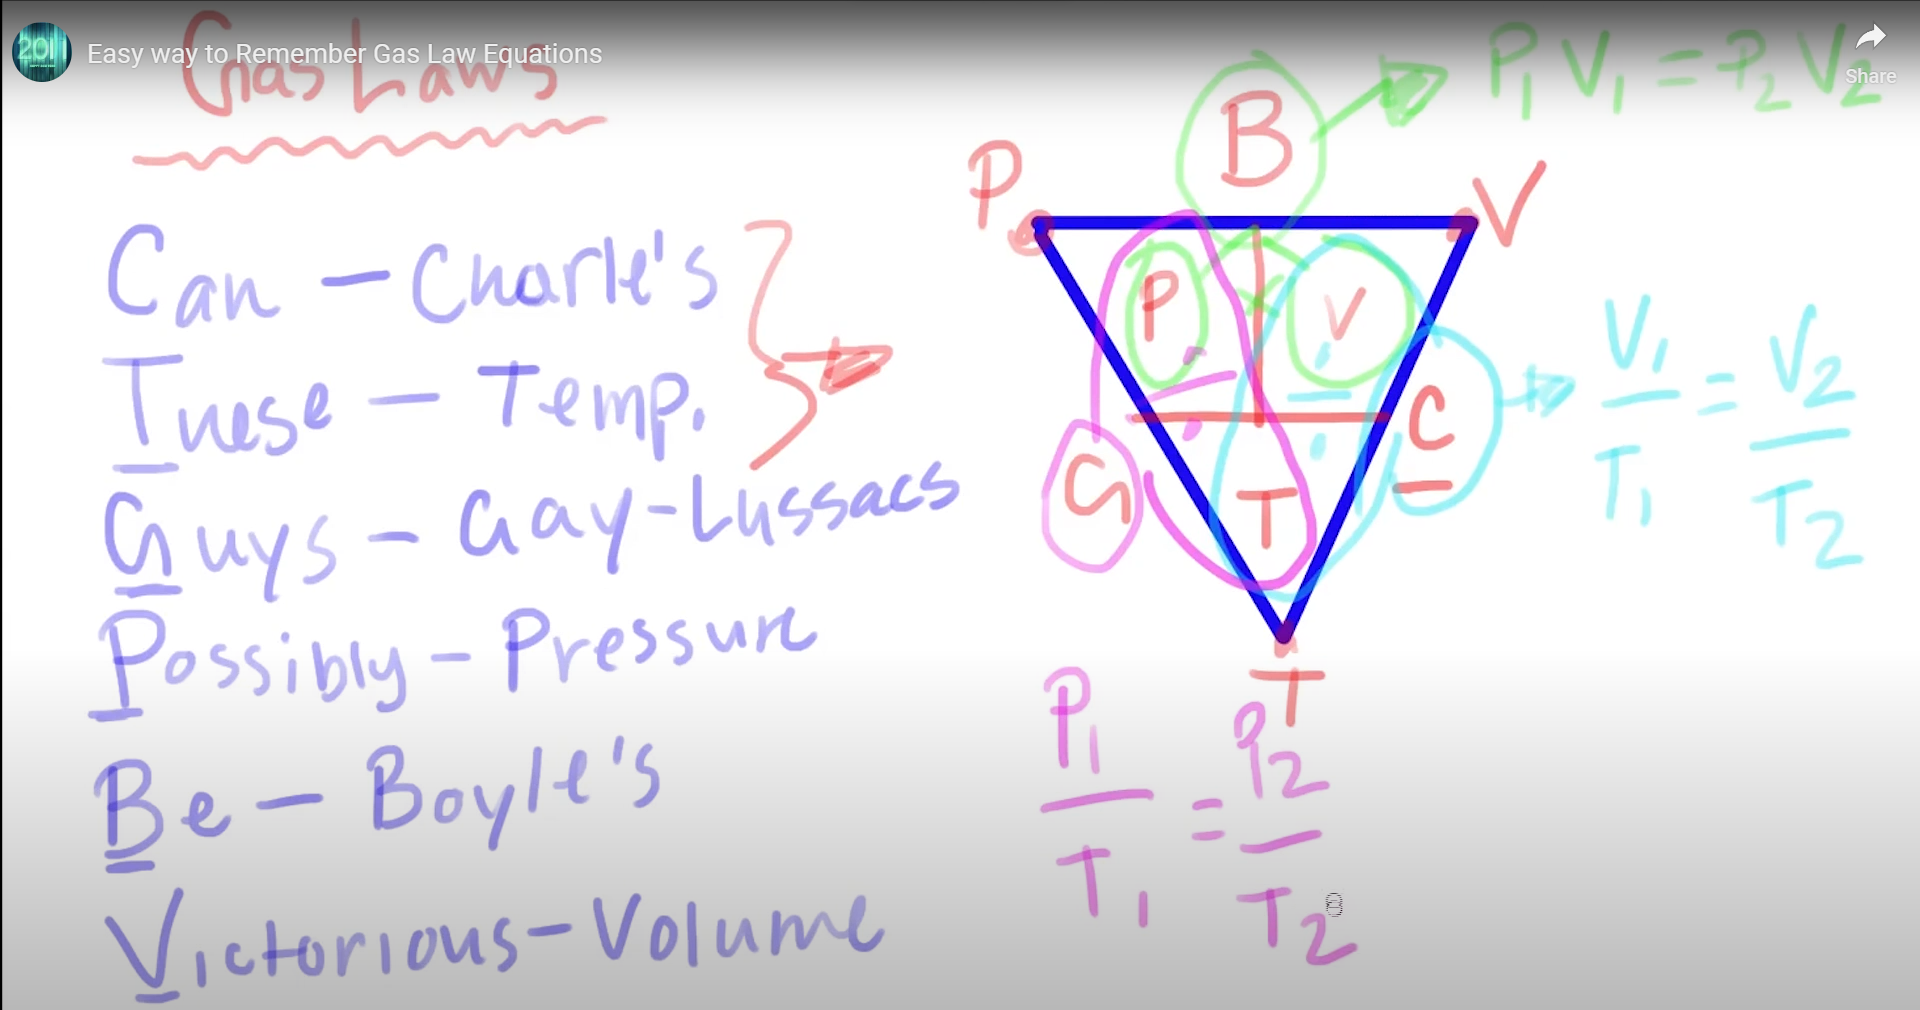 2011
Easy way to Remember Gas Law Equations
Share
Gas Laws
Can - Charle's
These - Temp.
Guys - Gay-Lussacs
Possibly - Pressure
Be - Boyle's
Victorious - Volume
B
P₁ V₁ = P₂ V₂
P
V
P
V
G
T
C
V₁/T₁ = V₂/T₂
T
P₁/T₁ = P₂/T₂